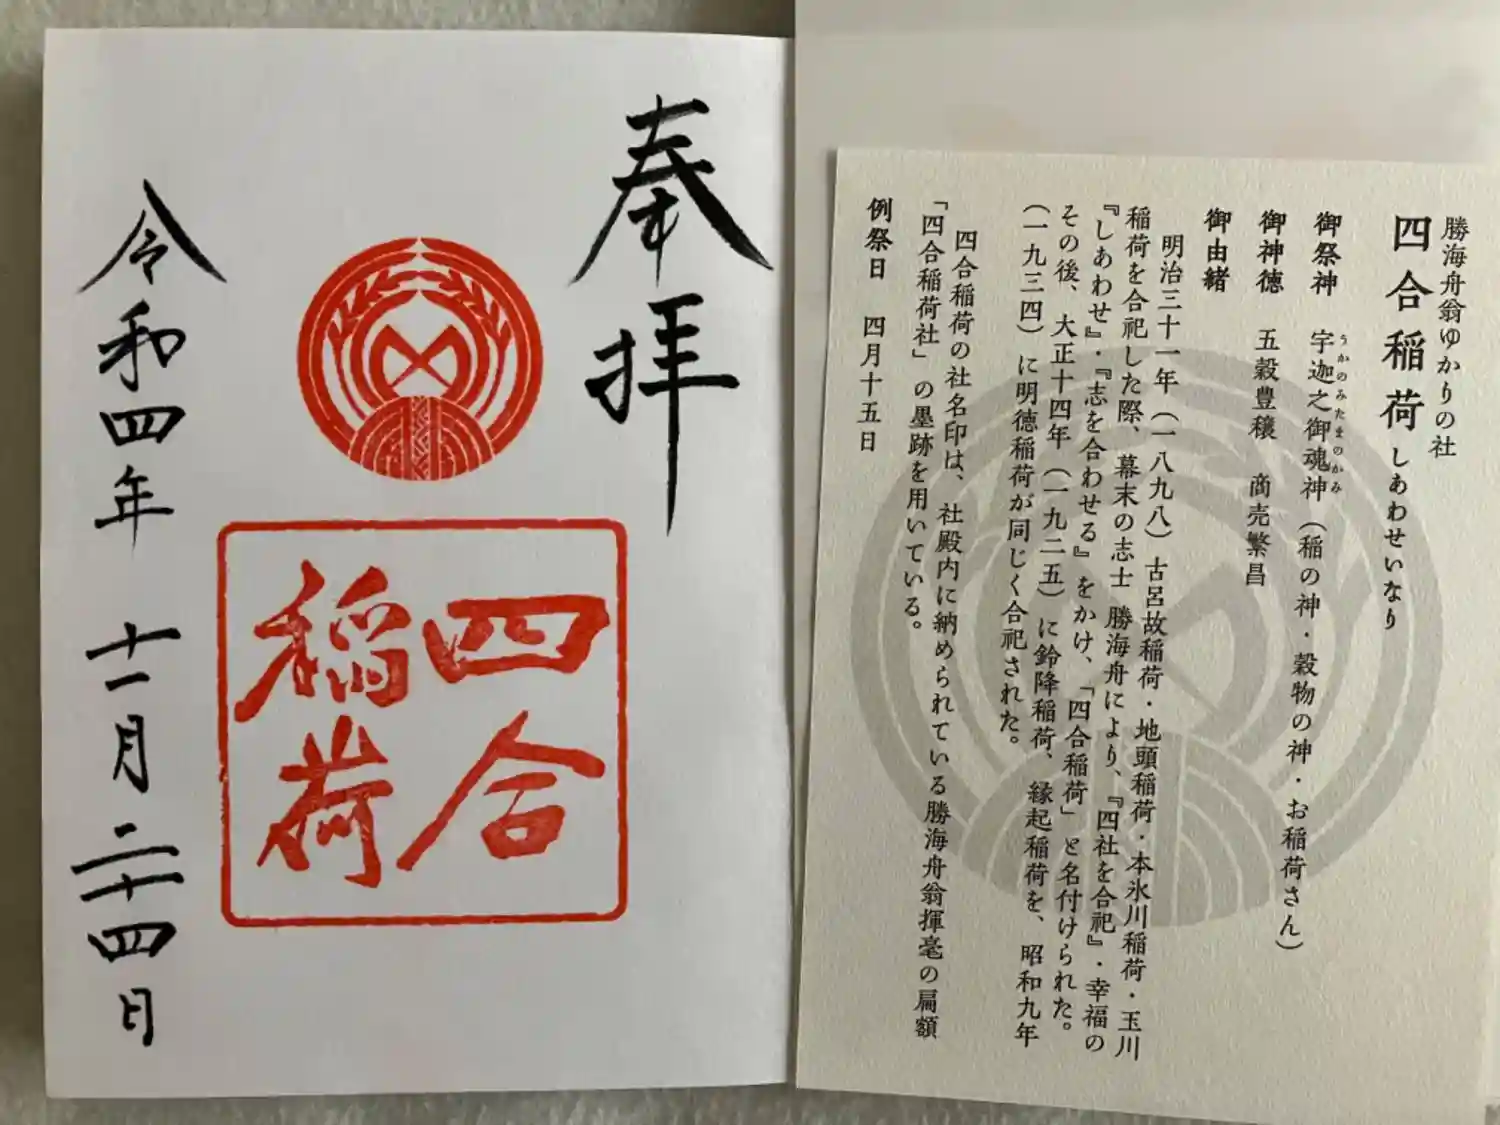 奉拝
四合
稲荷
令和四年 十一月 二十四日
勝海舟翁ゆかりの社
四合稲荷 しあわせいなり
御祭神 宇迦之御魂神（稲の神・穀物の神・お稲荷さん）
うかのみたまのかみ
御神徳 五穀豊穣 商売繁昌
御由緒
明治三十一年（一八九八）古呂故稲荷・地頭稲荷・本氷川稲荷・玉川
稲荷を合祀した際、幕末の志士 勝海舟により、『四社を合祀』・幸福の
『しあわせ』・『志を合わせる』をかけ、「四合稲荷」と名付けられた。
その後、大正十四年（一九二五）に鈴降稲荷、縁起稲荷を、昭和九年
（一九三四）に明徳稲荷が同じく合祀された。
四合稲荷の社名印は、社殿内に納められている勝海舟翁揮毫の扁額
「四合稲荷社」の墨跡を用いている。
例祭日 四月十五日